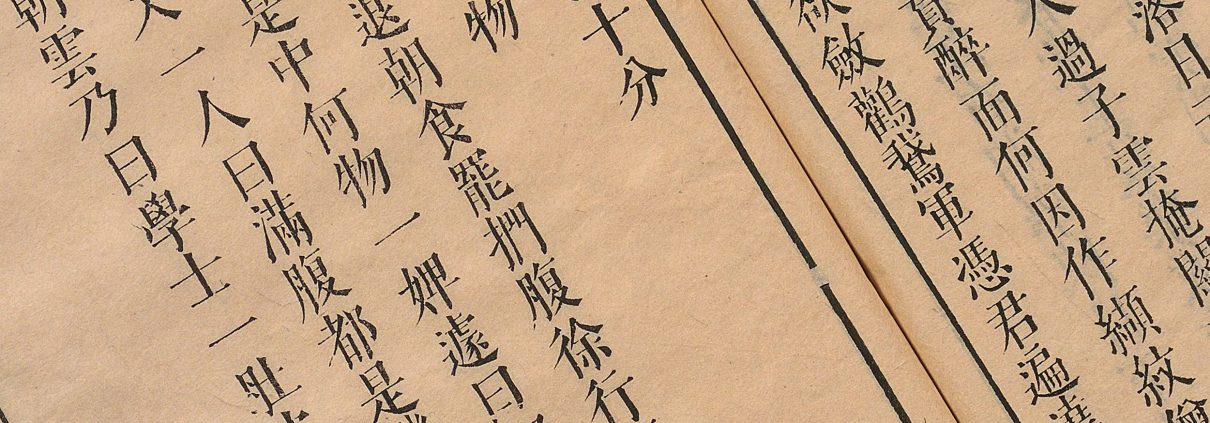 落日
過子雲掩關
醉面何因作纈紋偷
欲斂鸛鵝軍憑君遍遶
十分
物
退朝食罷捫腹徐行
是中何物一婢遽曰
又一人曰滿腹都是
朝雲乃曰學士一肚